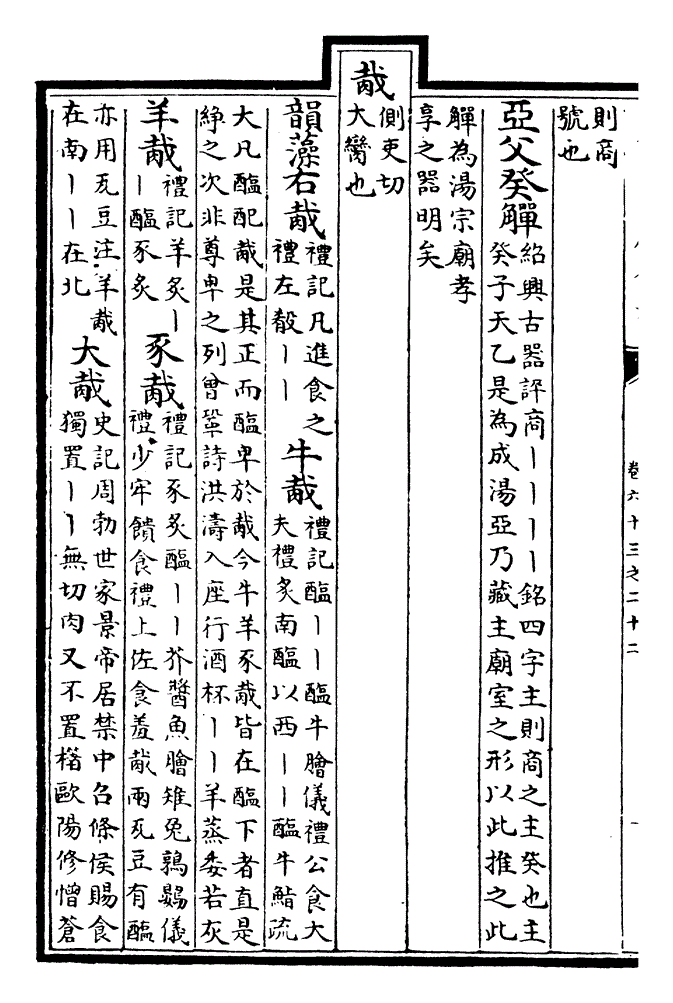 則商
號也
亞父癸觶
紹興古器評商丨丨丨丨銘四字主則商之主癸也主
癸子天乙是為成湯亞乃藏主廟室之形以此推之此
觶為湯宗廟孝
享之器明矣
胾
側吏切
大臠也
韻藻右胾
禮記凡進食之
禮左殽丨丨
牛胾
禮記醢丨丨醢牛膾儀禮公食大
夫禮炙南醢以西丨丨醢牛鮨疏
大凡醢配胾是其正而醢卑於胾今牛羊豕胾皆在醢下者直是
絣之次非尊卑之列曾鞏詩洪濤入座行酒杯丨丨羊蒸委若灰
羊胾
禮記羊炙丨
丨醢豕炙
豕胾
禮記豕炙醢丨丨芥醬魚膾雉兔鶉鷃儀
禮少牢饋食禮上佐食羞胾兩瓦豆有醢
亦用瓦豆注羊胾
在南丨丨在北
大胾
史記周勃世家景帝居禁中召條侯賜食
獨置丨丨無切肉又不置櫡歐陽修憎蒼
卷六十三之二十二